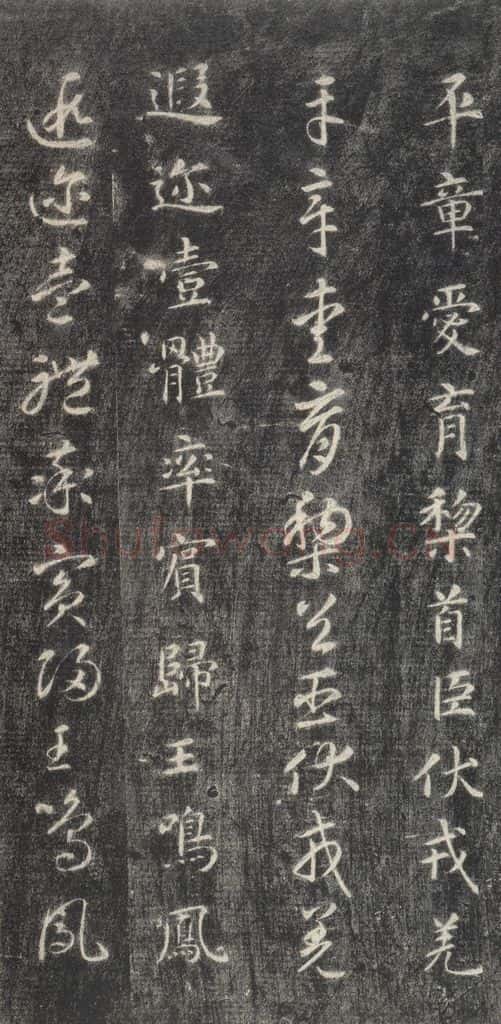 平章愛育黎首臣伏戎羌
平章愛育黎首臣伏戎羌
遐迩壹體率賓歸王鳴鳳
遐迩壹體率賓歸王鳴鳳
shufawang.cn